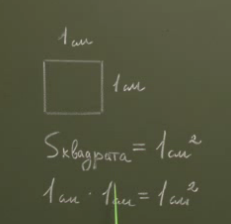 1 см
1 см
Sквадрата = 1 см²
1 см · 1 см = 1 см²